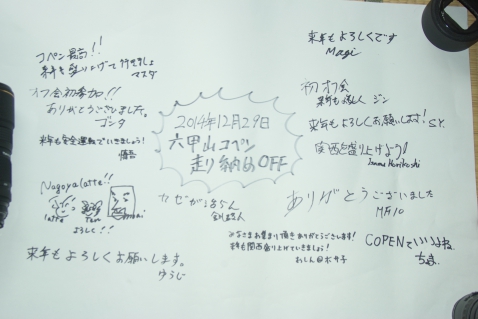 コペン最高!!
来年も盛り上げて行きましょ
マスダ
オフ会初参加!!
ありがとうございました。
ゴンタ
来年も安全運転でいきましょう!
Nagoya latte!!
latte
よろしく!!
来年もよろしくお願いします。
ゆうじ
2014年12月29日
六甲山コペン
走り納めOFF
カゼが治らん
みなさまお集まり頂きありがとうございます!
来年も関西盛り上げていきましょう!
わしん@ボサ子
来年もよろしくです
Magi
初オフ会
来年も ジン
来年もよろしくお願いします! S.Y.
関西を盛り上げよう!
ありがとうございました
COPENでいいよね